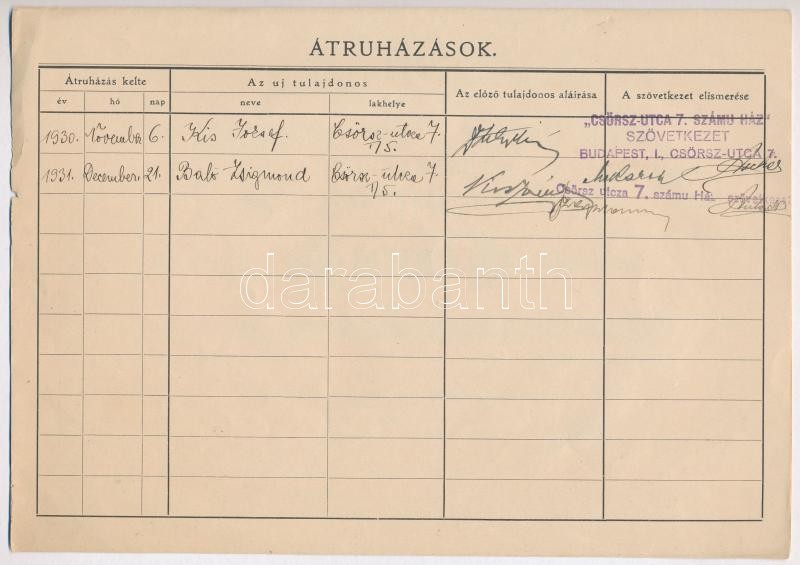 ÁTRUHÁZÁSOK.
Átruházás kelte
Az uj tulajdonos
Az előző tulajdonos aláírása
A szövetkezet elismerése
év
hó
nap
neve
lakhelye
1930. November 6. Kis József. Csörsz-utca 7.
I/5.
„CSÖRSZ-UTCA 7. SZÁMU HÁZ"
SZÖVETKEZET
BUDAPEST, I., CSÖRSZ-UTCA 7.
1931. December 21. Baló Zsigmond Csörsz-utca 7.
I/5.
Csörsz utcza 7. számu Ház szövetkezet
darabanth